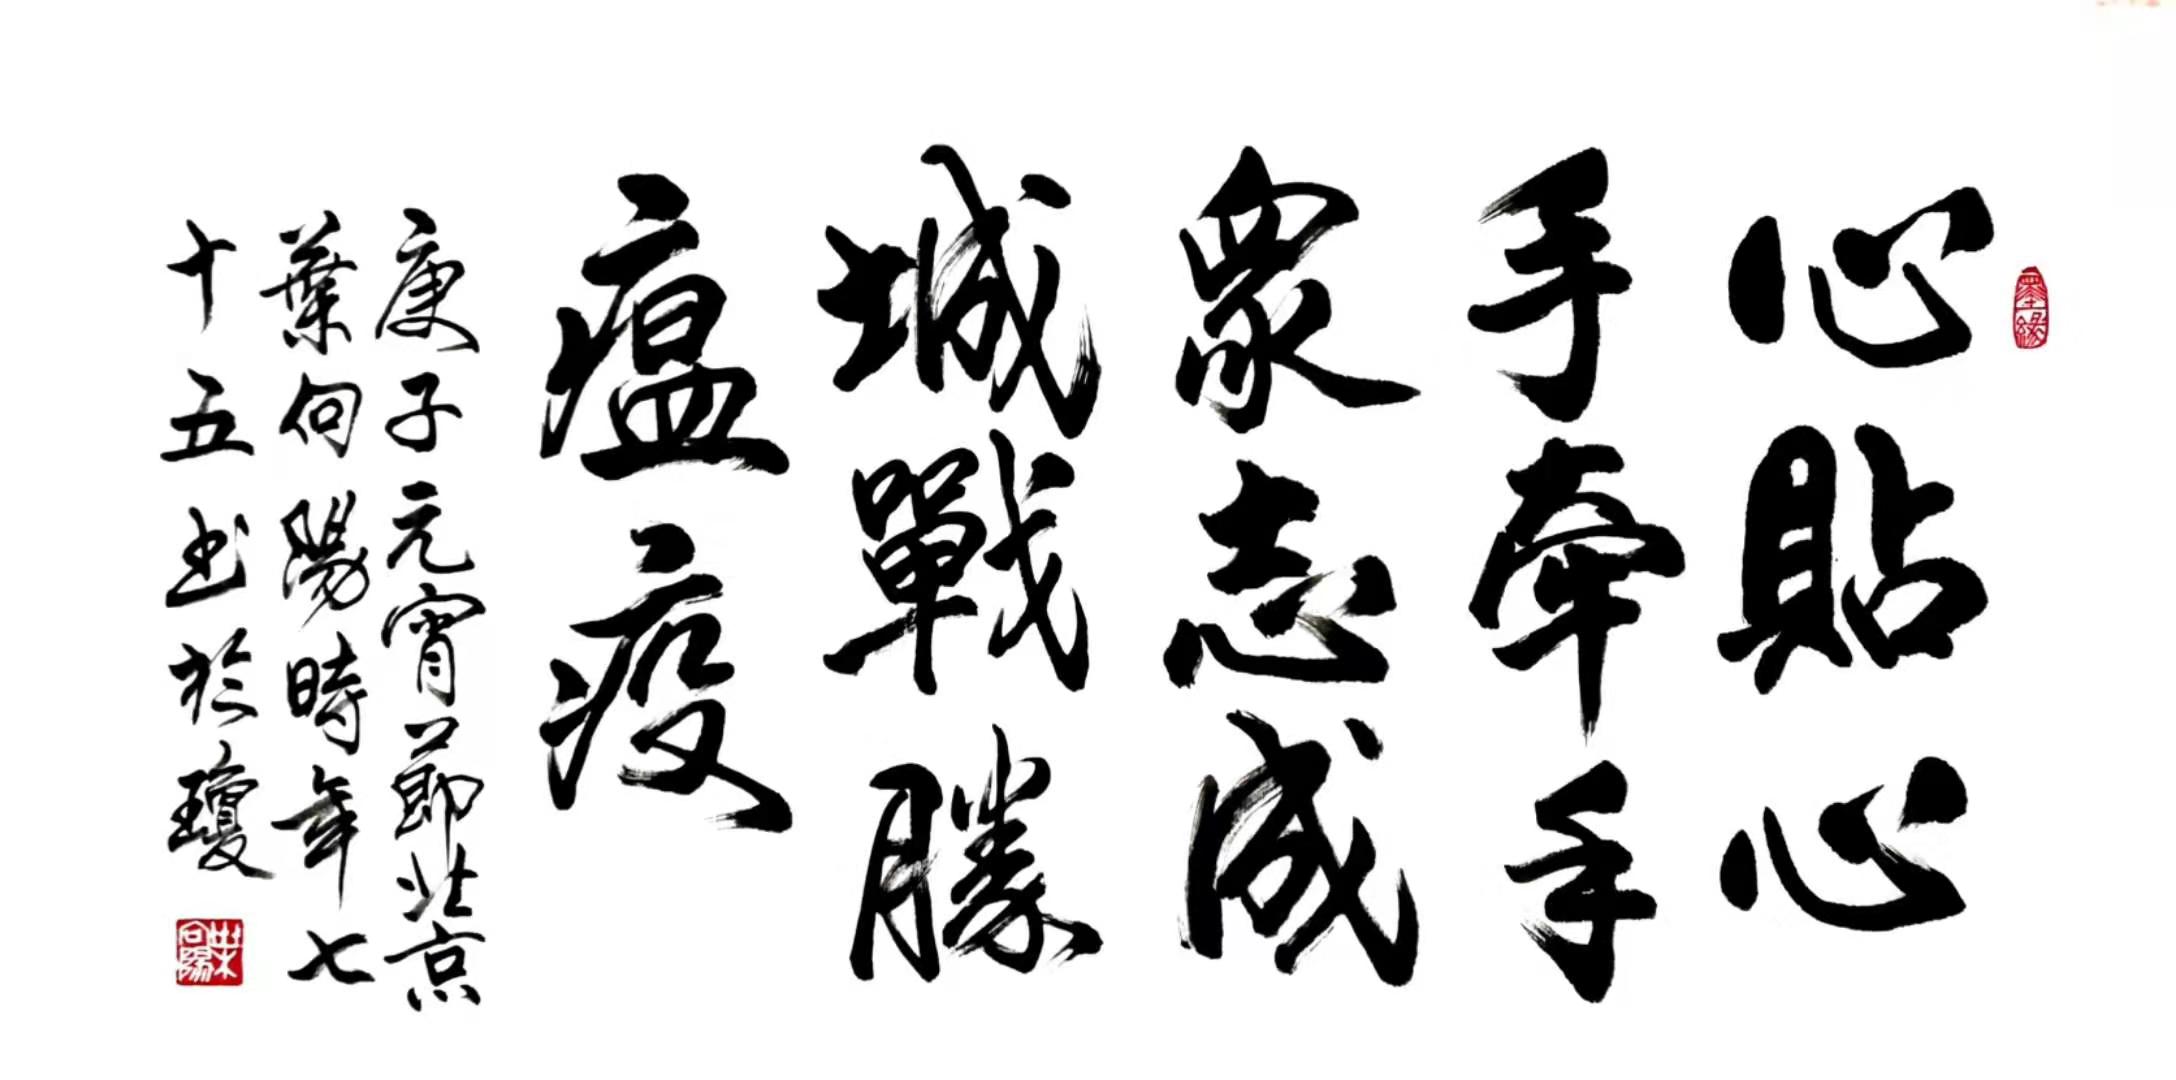 墨缘
心貼心
手牽手
眾志成
城戰勝
瘟疫
庚子元宵節北京
葉向陽時年七
十五书於瓊
葉向陽